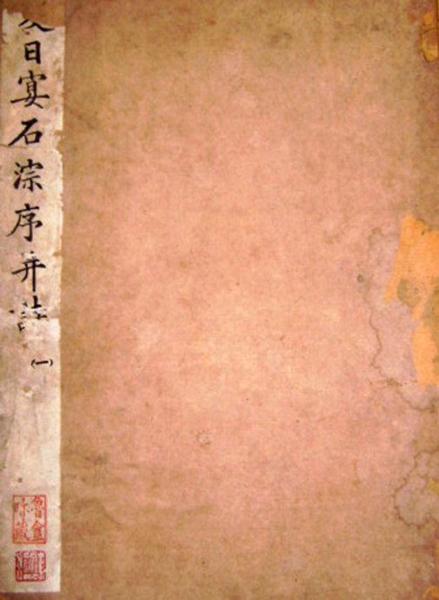 日宴石淙序并詩
(一)